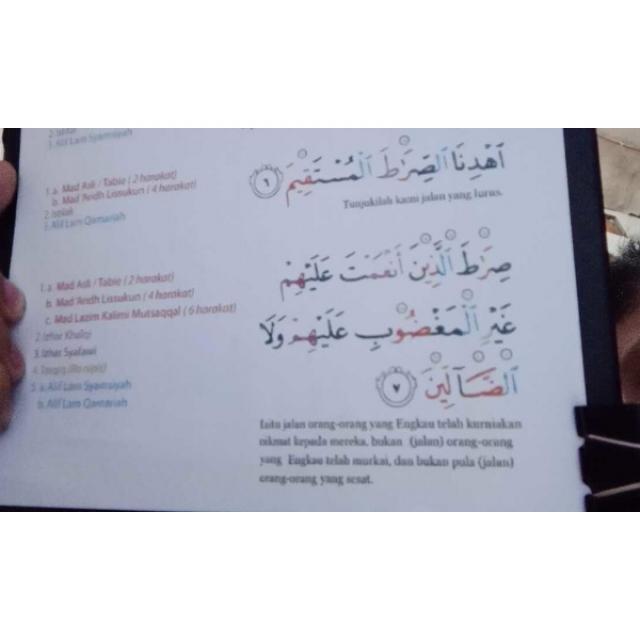 3. Alif Lam Syamsiyah
1. a. Mad Asli / Tabie ( 2 harakat)
b. Mad 'Aridh Lissukun ( 4 harakat)
2. Istilak
3. Alif Lam Qamariah
اَهْدِنَا الصِّرَٰطَ الْمُسْتَقِيْمَ ٦
Tunjukilah kami jalan yang lurus.
1. a. Mad Asli / Tabie ( 2 harakat)
b. Mad 'Aridh Lissukun ( 4 harakat)
c. Mad Lazim Kalimi Mutsaqqal ( 6 harakat)
2. Izhar Khalqi
3. Izhar Syafawi
4. (Ra nipis)
5. a. Alif Lam Syamsiyah
b. Alif Lam Qamariah
صِرَٰطَ الَّذِيْنَ أَنْعَمْتَ عَلَيْهِمْ
غَيْرِ الْمَغْضُوْبِ عَلَيْهِمْ وَلَا
الضَّآلِّيْنَ ٧
Iaitu jalan orang-orang yang Engkau telah kurniakan
nikmat kepada mereka, bukan (jalan) orang-orang
yang Engkau telah murkai, dan bukan pula (jalan)
orang-orang yang sesat.